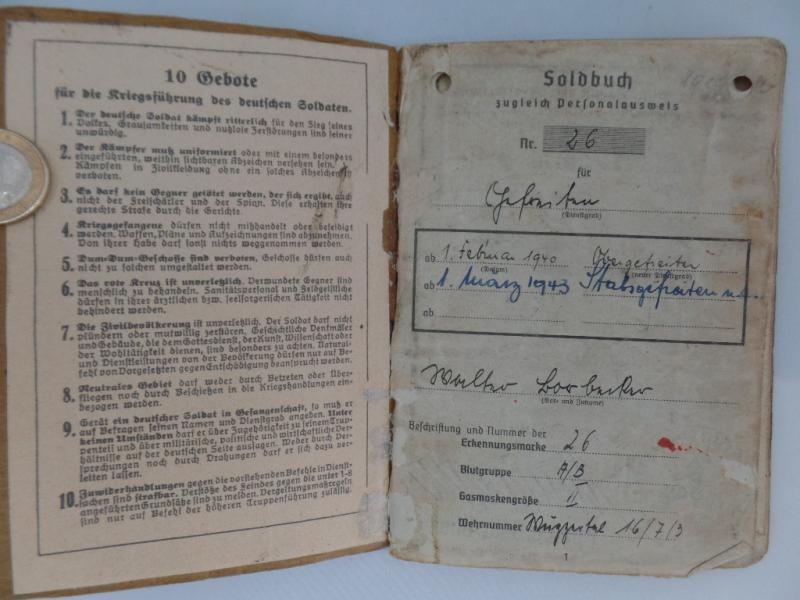 10 Gebote
für die Kriegsführung des deutschen Soldaten.
1. Der deutsche Soldat kämpft ritterlich für den Sieg seines
Volkes. Grausamkeiten und nutzlose Zerstörungen sind seiner
unwürdig.
2. Der Kämpfer muß uniformiert oder mit einem besonders
eingeführten, weithin sichtbaren Abzeichen versehen sein.
Kämpfen in Zivilkleidung ohne ein solches Abzeichen ist
verboten.
3. Es darf kein Gegner getötet werden, der sich ergibt, auch
nicht der Freischärler und der Spion. Diese erhalten ihre
gerechte Strafe durch die Gerichte.
4. Kriegsgefangene dürfen nicht mißhandelt oder beleidigt
werden. Waffen, Pläne und Aufzeichnungen sind abzunehmen.
Von ihrer Habe darf sonst nichts weggenommen werden.
5. Dum-Dum-Geschosse sind verboten. Geschosse dürfen auch
nicht zu solchen umgestaltet werden.
6. Das rote Kreuz ist unverletzlich. Verwundete Gegner sind
menschlich zu behandeln. Sanitätspersonal und Feldgeistliche
dürfen in ihrer ärztlichen bzw. seelsorgerischen Tätigkeit nicht
behindert werden.
7. Die Zivilbevölkerung ist unverletzlich. Der Soldat darf nicht
plündern oder mutwillig zerstören. Geschichtliche Denkmäler
und Gebäude, die dem Gottesdienst, der Kunst, Wissenschaft oder
der Wohltätigkeit dienen, sind besonders zu achten. Natural-
und Dienstleistungen von der Bevölkerung dürfen nur auf Be-
fehl von Vorgesetzten gegen Entschädigung beansprucht werden.
8. Neutrales Gebiet darf weder durch Betreten oder Über-
fliegen noch durch Beschießen in die Kriegshandlungen ein-
bezogen werden.
9. Gerät ein deutscher Soldat in Gefangenschaft, so muß er
auf Befragen seinen Namen und Dienstgrad angeben. Unter
keinen Umständen darf er über Zugehörigkeit zu seinem Trup-
penteil und über militärische, politische und wirtschaftliche Ver-
hältnisse auf der deutschen Seite aussagen. Weder durch Ver-
sprechungen noch durch Drohungen darf er sich dazu ver-
leiten lassen.
10. Zuwiderhandlungen gegen die vorstehenden Befehle in Dienst-
sachen sind strafbar. Verstöße des Feindes gegen die unter 1-8
angeführten Grundsätze sind zu melden. Vergeltungsmaßregeln
sind nur auf Befehl der höheren Truppenführung zulässig.
Soldbuch
zugleich Personalausweis
Nr. 26
für
Gefreiten
(Dienstgrad)
ab 1. Februar 1940 Obergefreiter
(Datum) (neuer Dienstgrad)
ab 1. März 1943 Stabsgefreiten
ab
Walter Borbecker
(Vor- und Zuname)
Beschriftung und Nummer der
Erkennungsmarke 26
Blutgruppe A/B
Gasmaskengröße II
Wehrnummer Wuppertal 16/7/3
1